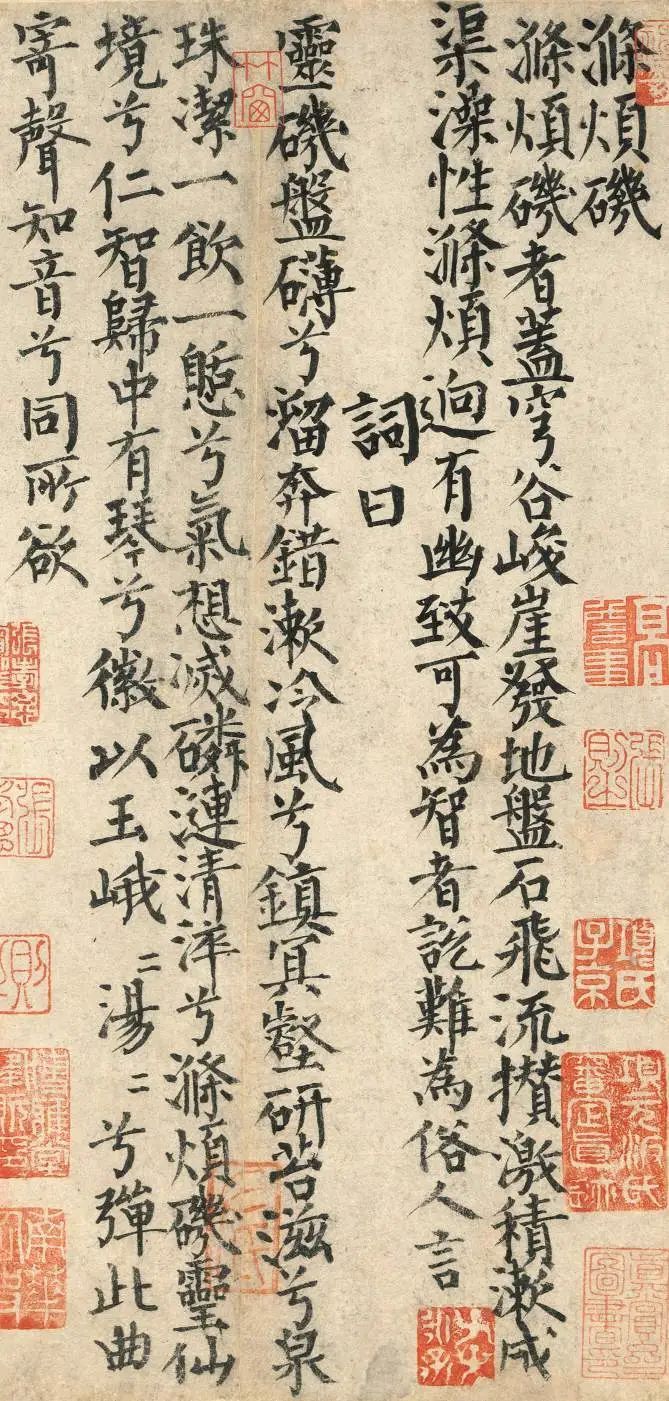 滌煩磯
滌煩磯者蓋穹谷峻崖發地盤石飛流攢激積漱成
渠澡性滌煩迥有幽致可為智者訖難為俗人言
詞曰
靈磯盤礴兮溜奔錯漱冷風兮鎮冥壑研苔滋兮泉
珠潔一飲一憇兮氣想滅磷漣清淬兮滌煩磯靈仙
境兮仁智歸中有琴兮徽以玉峨二湯二兮彈此曲
寄聲知音兮同所欲
項氏子京